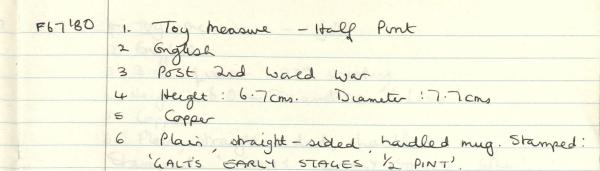 F67'80 1. Toy Measure - Half Pint
2 English
3 Post 2nd World War
4 Height : 6.7cms. Diameter : 7.7cms
5 Copper
6 Plain, straight-sided, handled mug. Stamped:
'GALT'S EARLY STAGES, 1/2 PINT'.